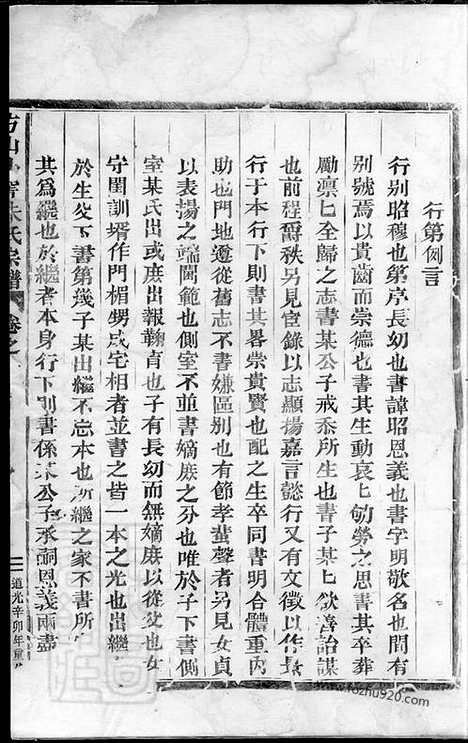 行第例言
行別昭穆也第序長幼也書諱昭恩義也書字明敬名也間有
別號焉以貴齒而崇德也書其生動哀匕劬勞之思書其卒葬
勵凛匕全歸之志書某公子戒忝所生也書子某匕欲善詒謀
也前程爵秩另見宦錄以志顯揚嘉言懿行又有文徵以作長
行于本行下則書其畧崇貴賢也配之生卒同書明合體重內
助也門地遷從舊志不書嫌區别也有節孝蜚聲者另見女貞
以表揚之端閫範也側室不並書嫡庶之分也唯於子下書側
室某氏出或庶出報鞠育也子有長幼而無嫡庶以從父也女
守閨訓壻作門楣甥成宅相者並書之皆一本之光也出繼
於生父下書第幾子某出繼不忘本也所繼之家不書所
其爲繼也於繼者本身行下則書係某公子承嗣恩義兩盡
朱氏宗譜
卷之
道光辛卯年重
www.fozhu920.com